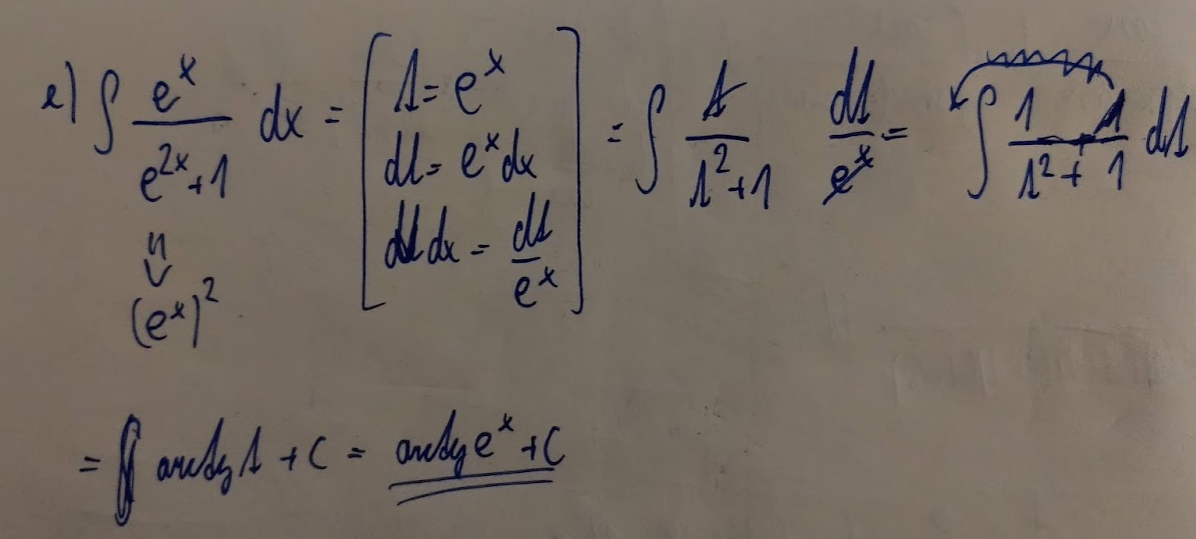 e) ∫ e^x / (e^{2x}+1) dx = [ t = e^x ; dt = e^x dx ; dx = dt / e^x ] = ∫ t / (t^2+1) dt / e^x = ∫ 1 / (t^2+1) dt
(e^x)^2
= arctg t + C = arctg e^x + C